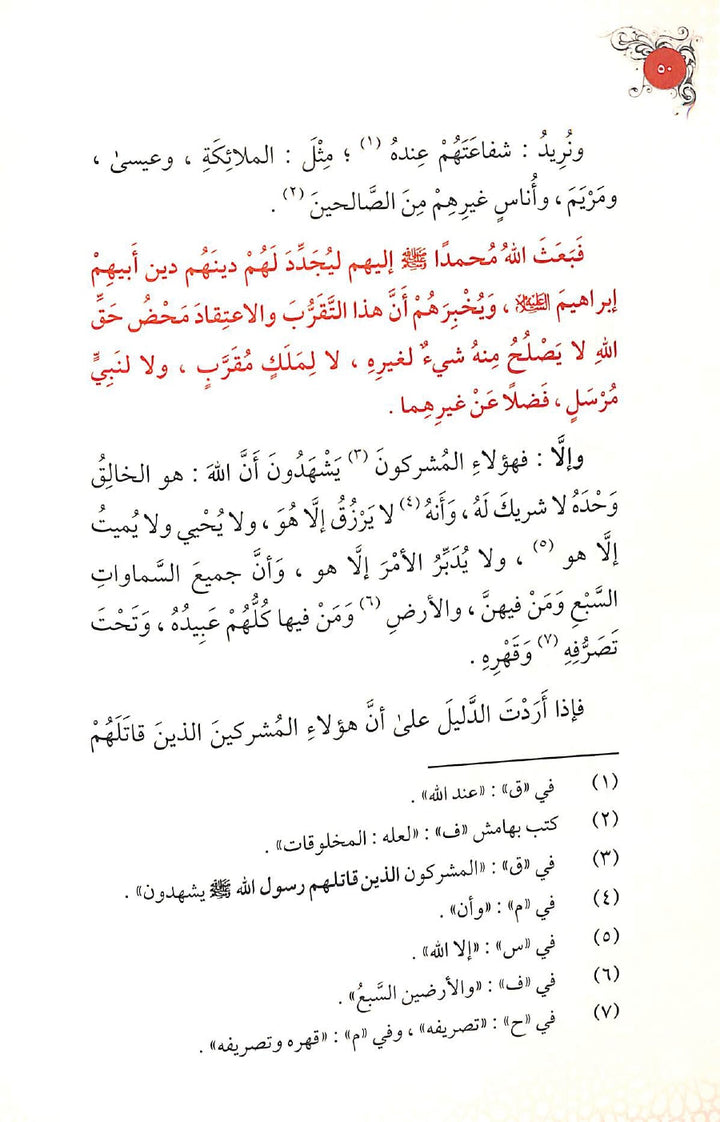 ٥٠
ونُرِيدُ : شفاعَتَهُمْ عِندهُ (١) ؛ مِثْلَ : الملائِكَةِ ، وعيسىٰ ،
ومَرْيَمَ ، وأُناسٍ غيرِهِمْ مِنَ الصَّالحينَ (٢) .
فَبَعَثَ اللهُ مُحمدًا ﷺ إليهم ليُجَدِّدَ لَهُمْ دينَهُم دين أَبيهِمْ
إبراهيمَ عليه السلام ، وَيُخْبِرَهُمْ أَنَّ هذا التَّقَرُّبَ والاعتِقادَ مَحْضُ حَقِّ
اللهِ لا يَصْلُحُ مِنهُ شيءٌ لغيرِهِ ، لا لِمَلَكٍ مُقَرَّبٍ ، ولا لنَبِيٍّ
مُرْسَلٍ ، فَضلًا عَنْ غيرِهِما .
وإلَّا : فهؤلاءِ المُشركونَ (٣) يَشْهَدُونَ أَنَّ اللهَ : هو الخالِقُ
وَحْدَهُ لا شريكَ لَهُ ، وَأَنهُ (٤) لا يَرْزُقُ إلَّا هُوَ ، ولا يُحْيي ولا يُميتُ
إلَّا هو (٥) ، ولا يُدَبِّرُ الأمْرَ إلَّا هو ، وَأنَّ جميعَ السَّماواتِ
السَّبْعِ وَمَنْ فيهنَّ ، والأرضِ (٦) وَمَنْ فيها كُلُّهُمْ عَبِيدُهُ ، وَتَحْتَ
تَصَرُّفِهِ (٧) وَقَهْرِهِ .
فإذا أَرَدْتَ الدَّليلَ علىٰ أنَّ هؤلاءِ المُشركينَ الذينَ قاتَلَهُمْ
(١) في «ق» : «عند الله» .
(٢) كتب بهامش «ف» : «لعله : المخلوقات» .
(٣) في «ق» : «المشركون الذين قاتلهم رسول الله ﷺ يشهدون» .
(٤) في «م» : «وأن» .
(٥) في «س» : «إلا الله» .
(٦) في «ف» : «والأرضين السَّبعُ» .
(٧) في «ح» : «تصريفه» ، وفي «م» : «قهره وتصريفه» .